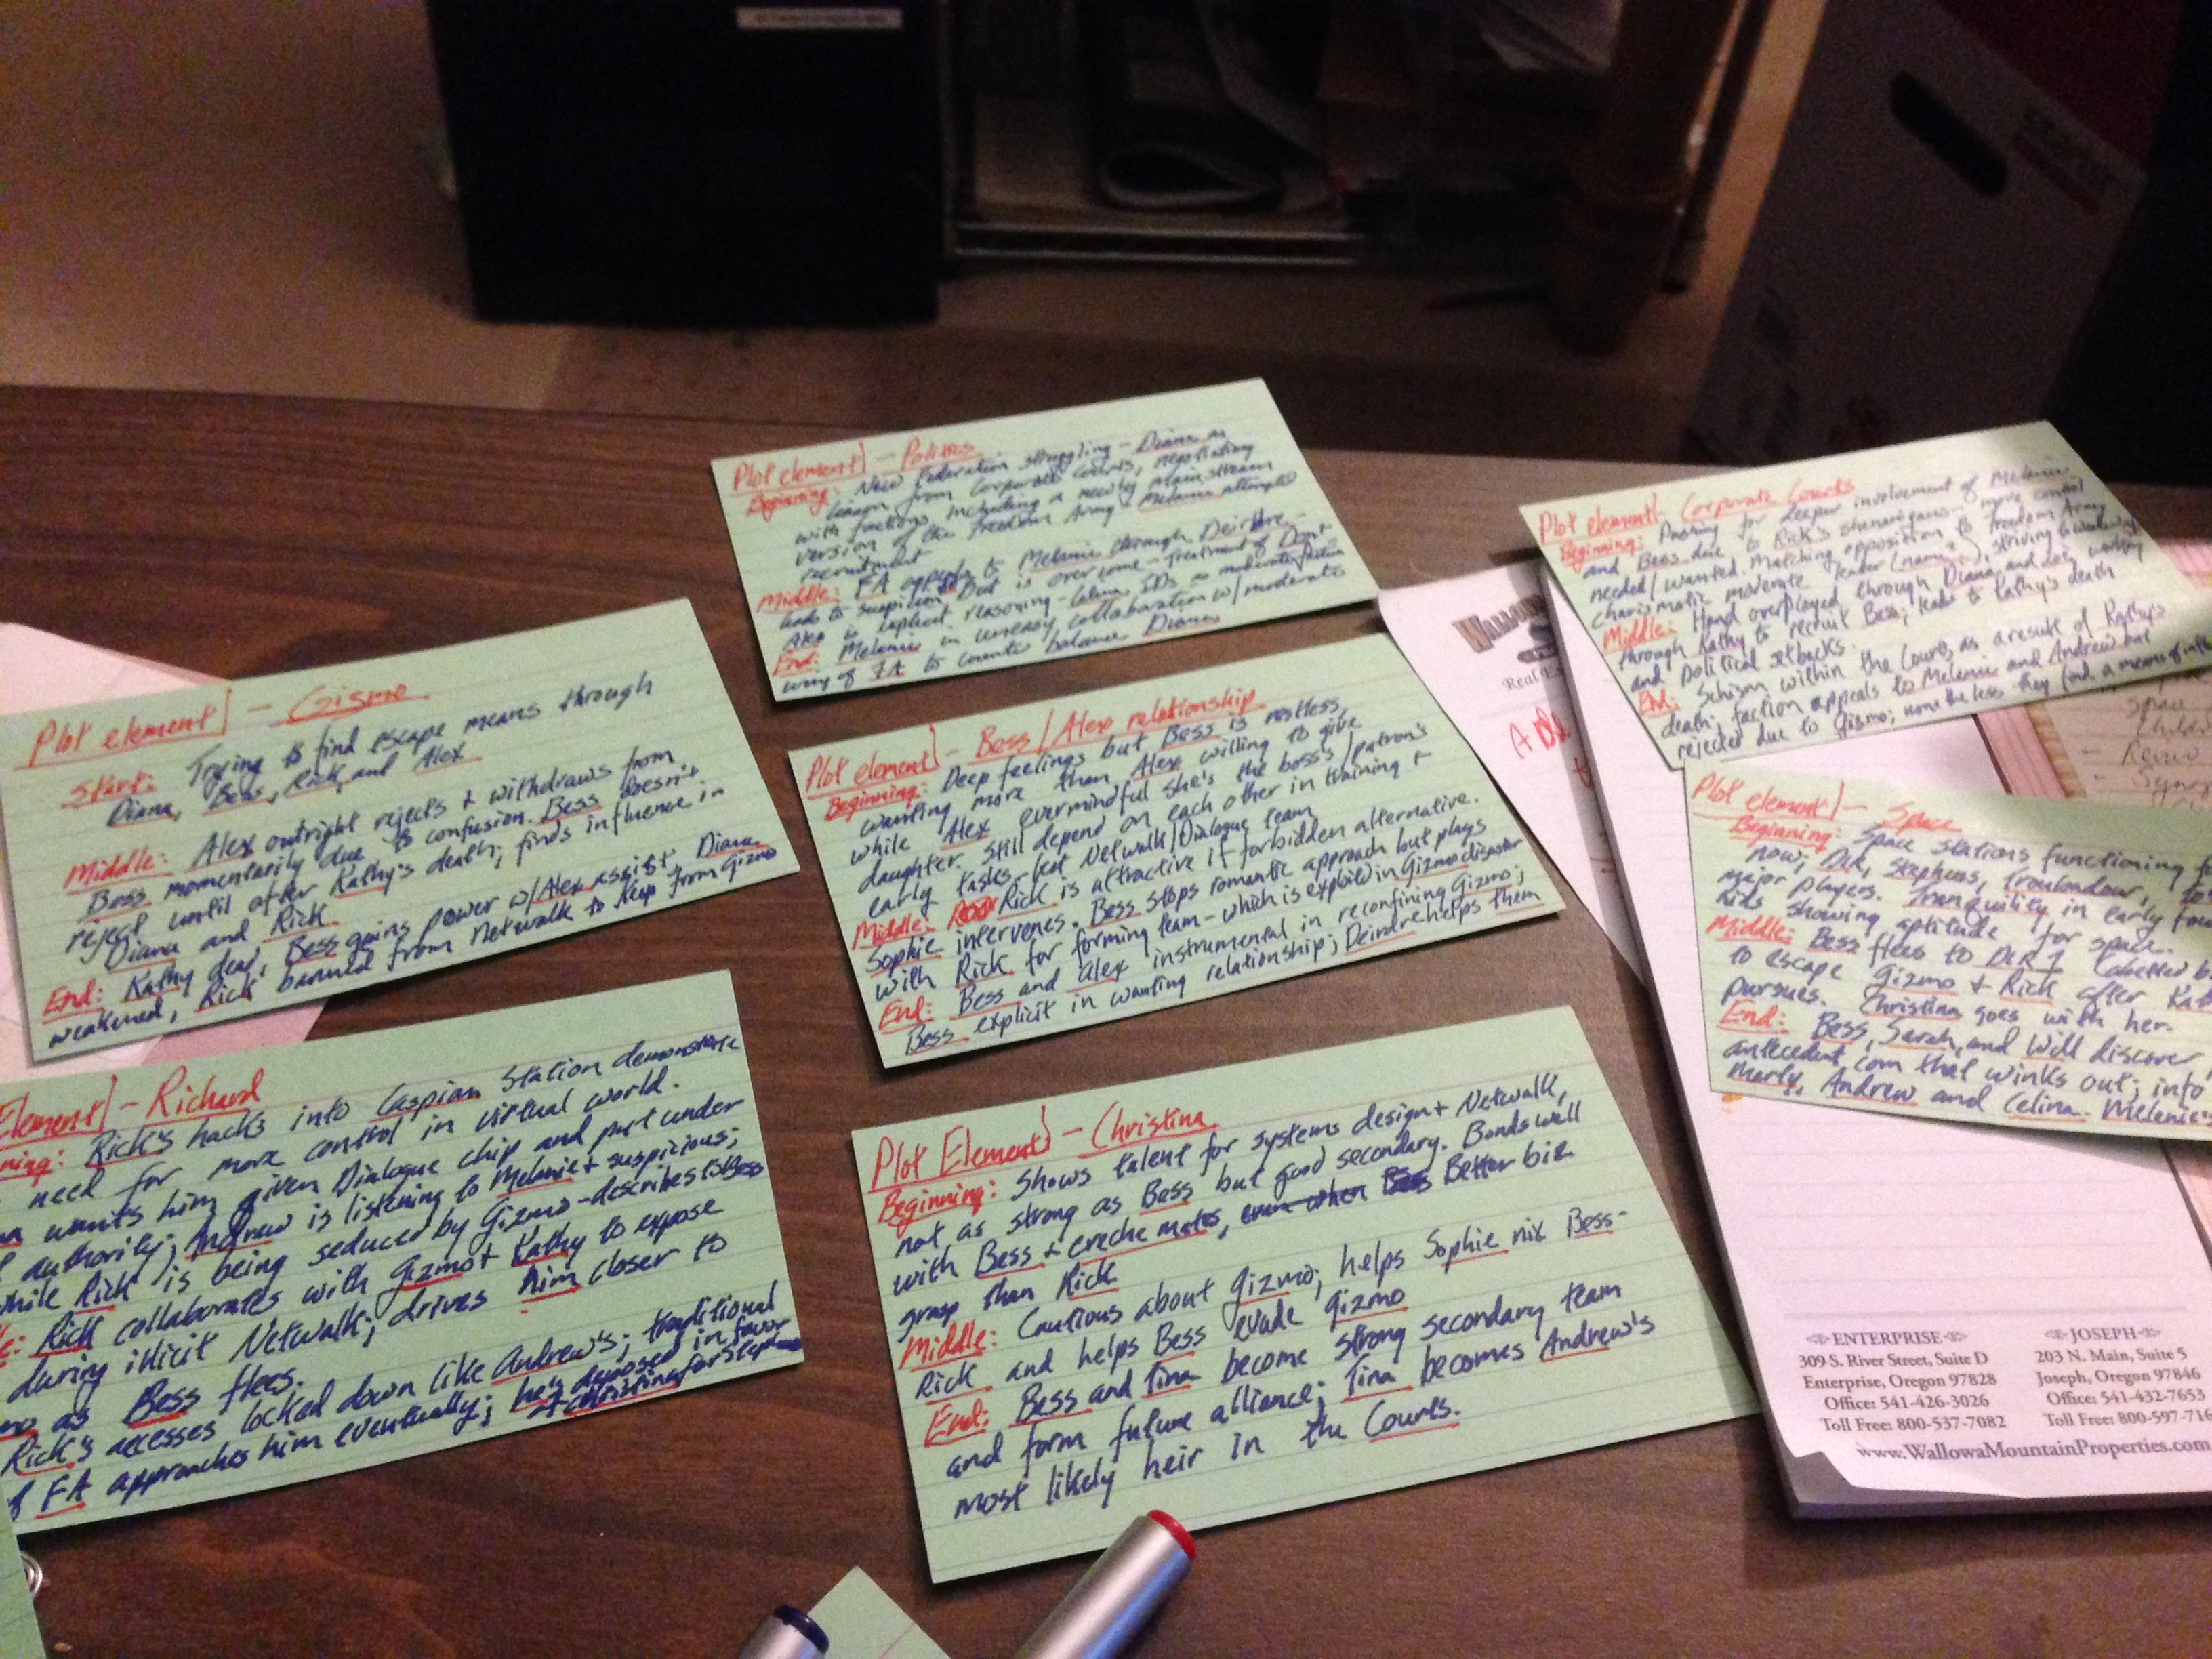 Plot element - Politics
Beginning: New Federation struggling - Diana as
liason from Corporate Courts, negotiating
with factions including a newly mainstream
version of the Freedom Army - Melanie attempted
recruitment
Middle: FA appeals to Melanie through Deirdre -
leads to suspicion but is overcome - treatment of
Alex is implicit reasoning - Celina IDs as moderate faction
End: Melanie in uneasy collaboration w/ moderate
wing of FA to counter balance Diana
Plot element - Corporate Courts
Beginning: Pushing for deeper involvement of Melanie
and Bess due to Rick's shenanigans - more control
needed/wanted. Matching opposition to Freedom Army
charismatic moderate leader (name?), striving to
Middle: Hand overplayed through Diana and
through Kathy to recruit Bess; leads to Kathy's death
and political setbacks.
End: Schism within the Courts as a result of Kathy's
death; faction appeals to Melanie and Andrew but
rejected due to Gizmo; none the less they find a means of
Plot element - Gizmo
Start: Trying to find escape means through
Diana, Bess, Rick, and Alex
Middle: Alex outright rejects + withdraws from
Bess momentarily due to confusion. Bess doesn't
reject until after Kathy's death; finds influence in
Diana and Rick
End: Kathy dead, Bess gains power w/Alex assist, Diana
weakened, Rick banned from Netwalk to keep from Gizmo
Plot element - Bess/Alex relationship
Beginning: Deep feelings but Bess is restless,
wanting more than Alex willing to give
while Alex evermindful she's the boss's/patron's
daughter. Still depend on each other in training +
early tasks - best Netwalk/Dialogue team
Middle: Rick is attractive if forbidden alternative.
Sophie intervenes. Bess stops romantic approach but plays
with Rick for forming team - which is exploited in Gizmo disaster
End: Bess and Alex instrumental in reconfining Gizmo;
Bess explicit in wanting relationship; Deirdre helps them
Plot element - Space
Beginning: Space stations functioning
now; DLR, Stephens, Troubadour,
major players. Tranquility in early
kids showing aptitude for space.
Middle: Bess flees to DLR 1 (abetted
to escape Gizmo + Rick after
pursues. Christina goes with her.
End: Bess, Sarah, and Will discover
antecedent com that winks out; info
Marty, Andrew and Celina. Melanie
Element - Richard
Rick's hacks into Caspian Station demonstrate
need for more control in virtual world.
wants him given Dialogue chip and put under
authority; Andrew is listening to Melanie + suspicious;
while Rick is being seduced by Gizmo - describes to Bess
Rick collaborates with Gizmo + Kathy to expose
during illicit Netwalk; drives him closer to
as Bess flees.
Rick's accesses locked down like Andrew's; traditional
FA approaches him eventually; he's deposed in favor
of Christina for Stephens
Plot Element - Christina
Beginning: Shows talent for systems design + Netwalk,
not as strong as Bess but good secondary. Bonds well
with Bess + creche mates, even when Bess Better biz
grasp than Rick
Middle: Cautious about Gizmo; helps Sophie nix Bess-
Rick and helps Bess evade Gizmo
End: Bess and Tina become strong secondary team
and form future alliance; Tina becomes Andrew's
most likely heir in the Courts.
ENTERPRISE
309 S. River Street, Suite D
Enterprise, Oregon 97828
Office: 541-426-3026
Toll Free: 800-537-7082
JOSEPH
203 N. Main, Suite 5
Joseph, Oregon 97846
Office: 541-432-7653
Toll Free: 800-597-716
www.WallowaMountainProperties.com